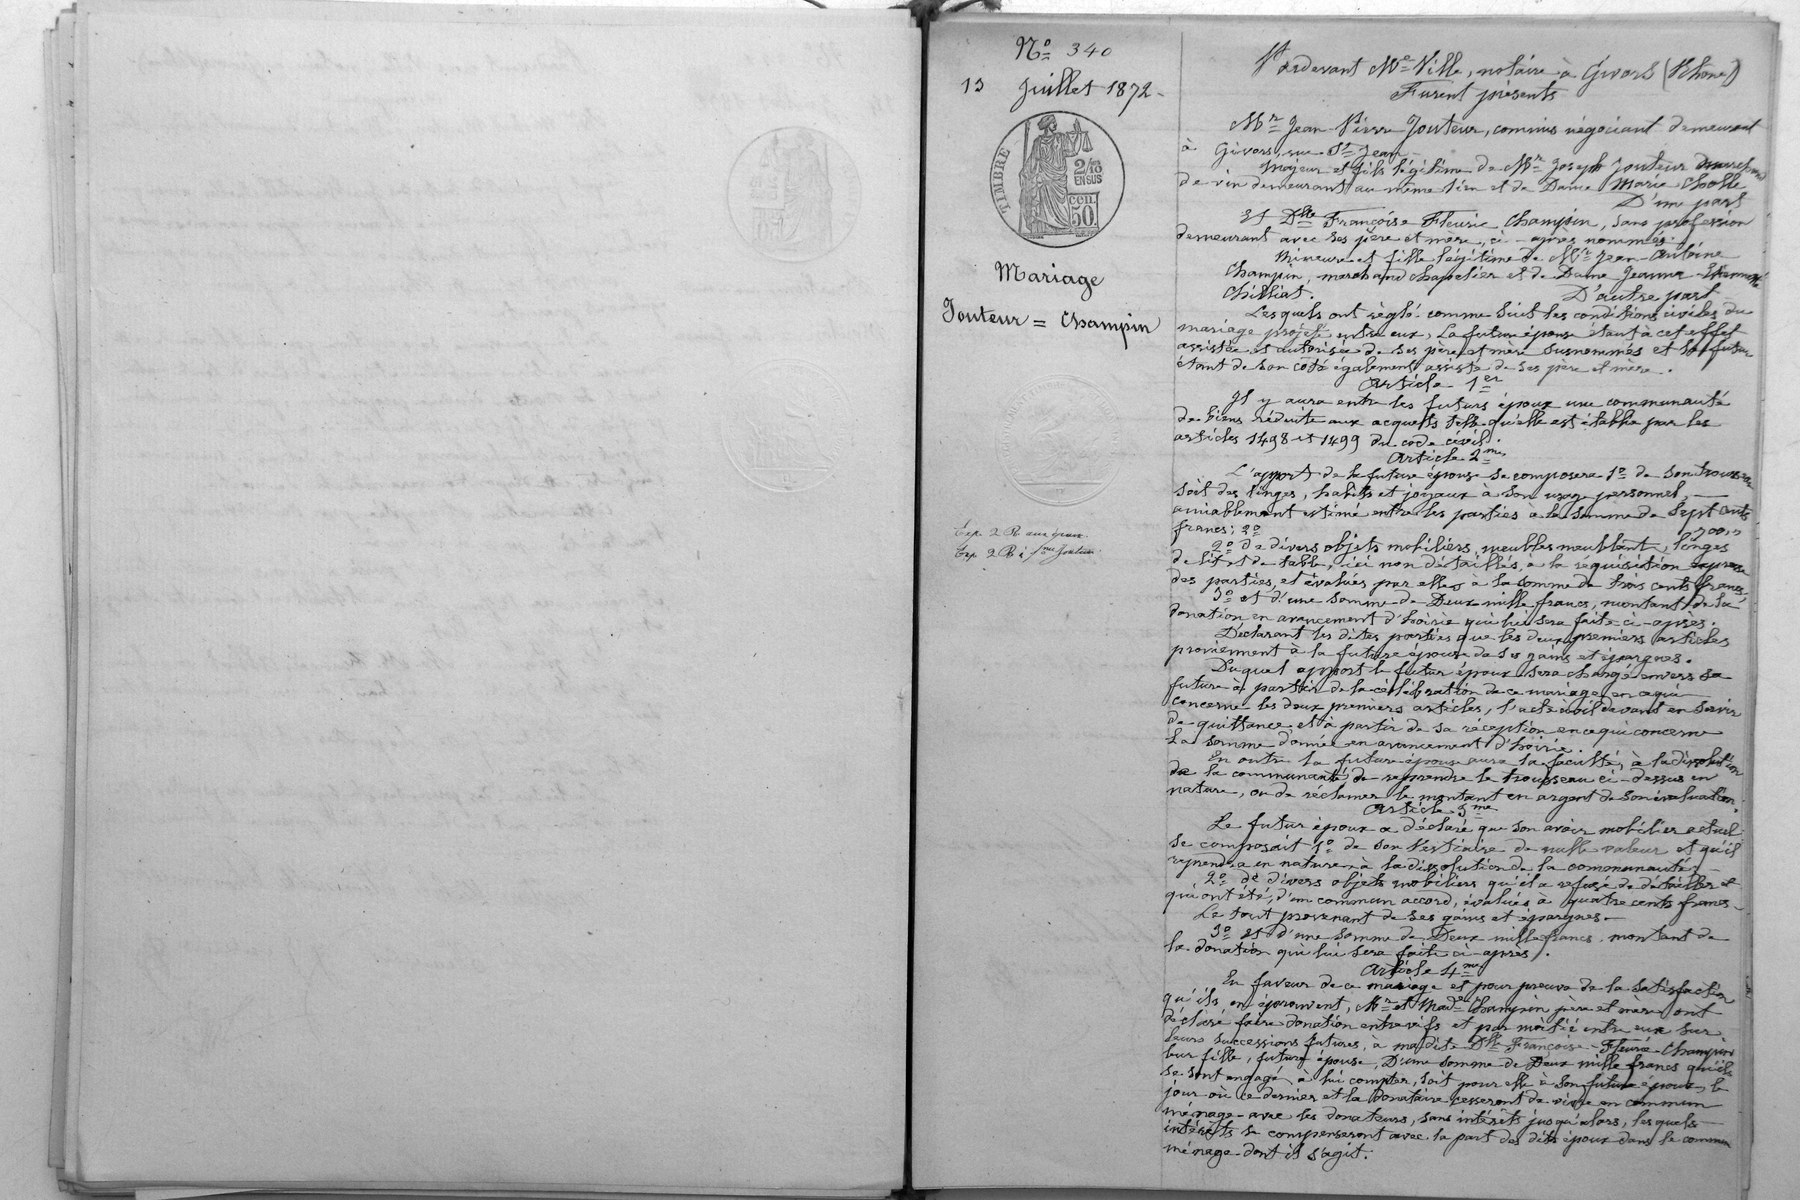 Nº 340
13 Juillet 1872 -
TIMBRE
2/10
EN SUS
cen.
50.
Mariage
Jouteur = Champin
Exp. 2 R aux époux
Exp. 2 R à Jouteur
Pardevant Me Ville, notaire à Givors (Rhône)
Furent présents
Mr Jean-Pierre Jouteur, commis négociant demeurant
à Givors, rue St Jean -
Majeur et fils légitime de Mr Joseph Jouteur marchand
de vin demeurant au même lieu et de Dame Marie Cholle
D'une part
Et Dlle Françoise Fleurie Champin, sans profession
demeurant avec ses père et mère, ci-après nommés.
Mineure et fille légitime de Mr Jean-Antoine
Champin, marchand chapelier et de Dame Jeanne
Chilliat.
D'autre part
Lesquels ont réglé comme suit les conditions civiles du
mariage projeté entre eux, La future épouse étant à cet effet
assistée et autorisée de ses père et mère susnommés et le futur
étant de son côté également assisté de ses père et mère.
Article 1er
Il y aura entre les futurs époux une communauté
de biens réduite aux acquêts telle qu'elle est établie par les
articles 1498 et 1499 du code civil.
Article 2me
L'apport de la future épouse se composera 1º de son trousseau
soit des linges, habits et joyaux à son usage personnel,
amiablement estimé entre les parties à la somme de sept cents
francs; 2º 700,,
2º de divers objets mobiliers, meubles meublant, linges
de lit et de table, ici non détaillés, à la réquisition expresse
des parties, et évalués par elles à la somme de trois cents francs;
3º et d'une somme de Deux mille francs, montant de la
donation en avancement d'hoirie qui lui sera faite ci-après.
Déclarant les dites parties que les deux premiers articles
proviennent à la future épouse de ses gains et épargnes.
Duquel apport le futur époux sera chargé envers sa
future à partir de la célébration de ce mariage en ce qui
concerne les deux premiers articles, l'acte civil devant en servir
de quittance, et à partir de sa réception en ce qui concerne
la somme donnée en avancement d'hoirie.
En outre la future épouse aura la faculté, à la dissolution
de la communauté, de reprendre le trousseau ci-dessus en
nature, ou de réclamer le montant en argent de son évaluation.
Article 3me
Le futur époux a déclaré que son avoir mobilier actuel
se composait 1º de son Vestiaire de nulle valeur et qu'il
reprendra en nature à la dissolution de la communauté,
2º de divers objets mobiliers qu'il a refusé de détailler et
qui ont été, d'un commun accord, évalués à quatre cents francs -
Le tout provenant de ses gains et épargnes -
3º et d'une somme de Deux mille francs, montant de
la donation qui lui sera faite ci-après.
Article 4me
En faveur de ce mariage et pour preuve de la satisfaction
qu'ils en éprouvent, Mr et Made Champin père et mère ont
déclaré faire donation entre vifs et par moitié entre eux sur
leurs successions futures, à ma dite Dlle Françoise-Fleurie Champin
leur fille, future épouse, D'une somme de Deux mille francs qu'ils
se sont engagé à lui compter, soit pour elle à son futur époux, le
jour où ce dernier et la Donataire cesseront de vivre en commun
ménage avec les donateurs, sans intérêts jusqu'alors, lesquels
intérêts se compenseront avec la part des dits époux dans le commun
ménage dont il s'agit.